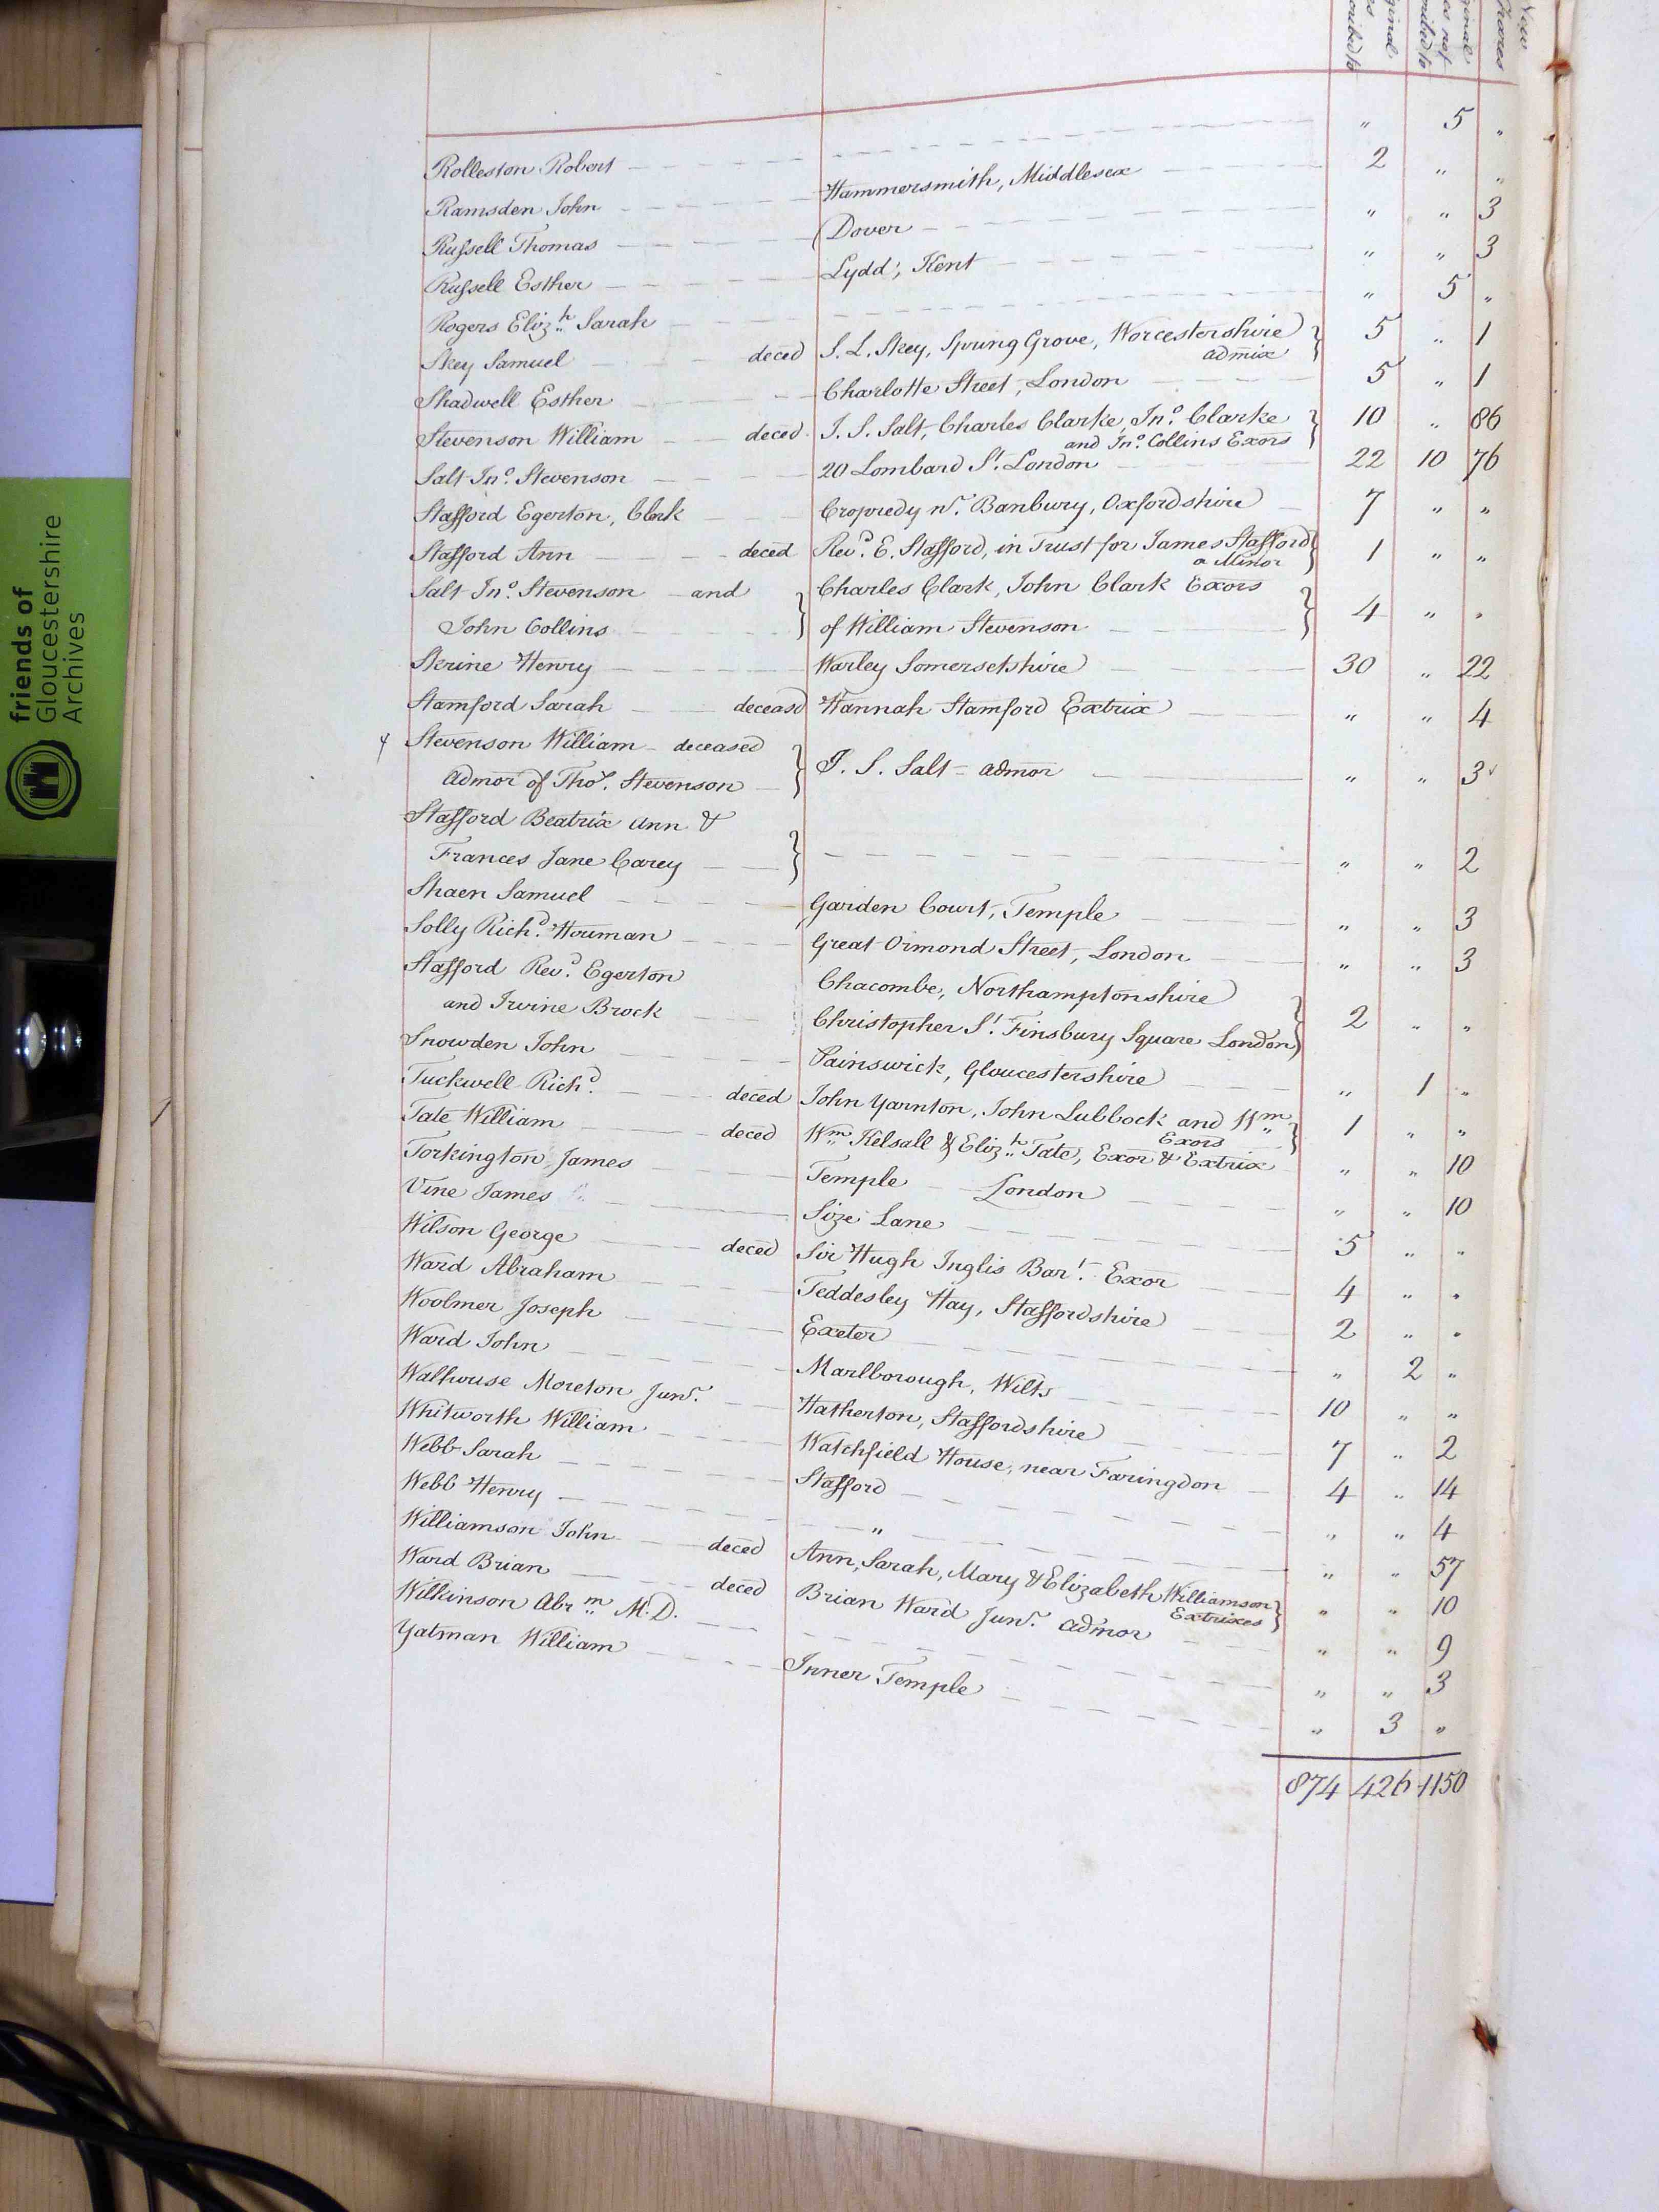 friends of
Gloucestershire
Archives
New
Shares
Rolleston Robert " 5 "
Ramsden John Hammersmith, Middlesex 2 " "
Russell Thomas Dover " " 3
Russell Esther Lydd, Kent " " 3
Rogers Eliz.h Sarah " 5 "
Skey Samuel deced S. L. Skey, Spring Grove, Worcestershire 5 " 1
admix
Shadwell Esther Charlotte Street, London 5 " 1
Stevenson William deced J. S. Salt, Charles Clarke, Jno. Clarke 10 " 86
and Jno. Collins Exors
Salt Jno. Stevenson 20 Lombard St. London 22 10 76
Stafford Egerton, Clerk Cropredy nr. Banbury, Oxfordshire 7 " "
Stafford Ann deced Revd. E. Stafford, in Trust for James Stafford 1 " "
a Minor
Salt Jno. Stevenson and Charles Clark, John Clark Exors
John Collins of William Stevenson 4 " "
Skrine Henry Warley Somersetshire 30 " 22
Stamford Sarah deceasd Hannah Stamford Extrix " " 4
Stevenson William deceased
Admor of Thos. Stevenson J. S. Salt admor " " 3
Stafford Beatrix Ann &
Frances Jane Carey " " 2
Shaen Samuel Garden Court, Temple " " 3
Solly Richd. Houman Great Ormond Street, London " " 3
Stafford Revd. Egerton Chacombe, Northamptonshire
and Irvine Brock Christopher St. Finsbury Square London 2 " "
Snowden John Painswick, Gloucestershire " 1 "
Tuckwell Richd. deced John Yarnton, John Lubbock and Wm 1 " "
Exors
Tate William deced Wm Kelsall & Eliz.h Tate, Exor & Extrix " " 10
Torkington James Temple London " " 10
Vine James Size Lane 5 " "
Wilson George deced Sir Hugh Inglis Bart. Exor 4 " "
Ward Abraham Teddesley Hay, Staffordshire 2 " "
Woolmer Joseph Exeter " 2 "
Ward John Marlborough, Wilts 10 " "
Walhouse Moreton Junr. Hatherton, Staffordshire 7 " 2
Whitworth William Watchfield House, near Faringdon 4 " 14
Webb Sarah Stafford " " 4
Webb Henry " " " 57
Williamson John deced Ann, Sarah, Mary & Elizabeth Williamson " " 10
Extrixes
Ward Brian deced Brian Ward Junr. admor " " 9
Wilkinson Abrm M.D. " " 3
Yatman William Inner Temple " 3 "
874 426 1150